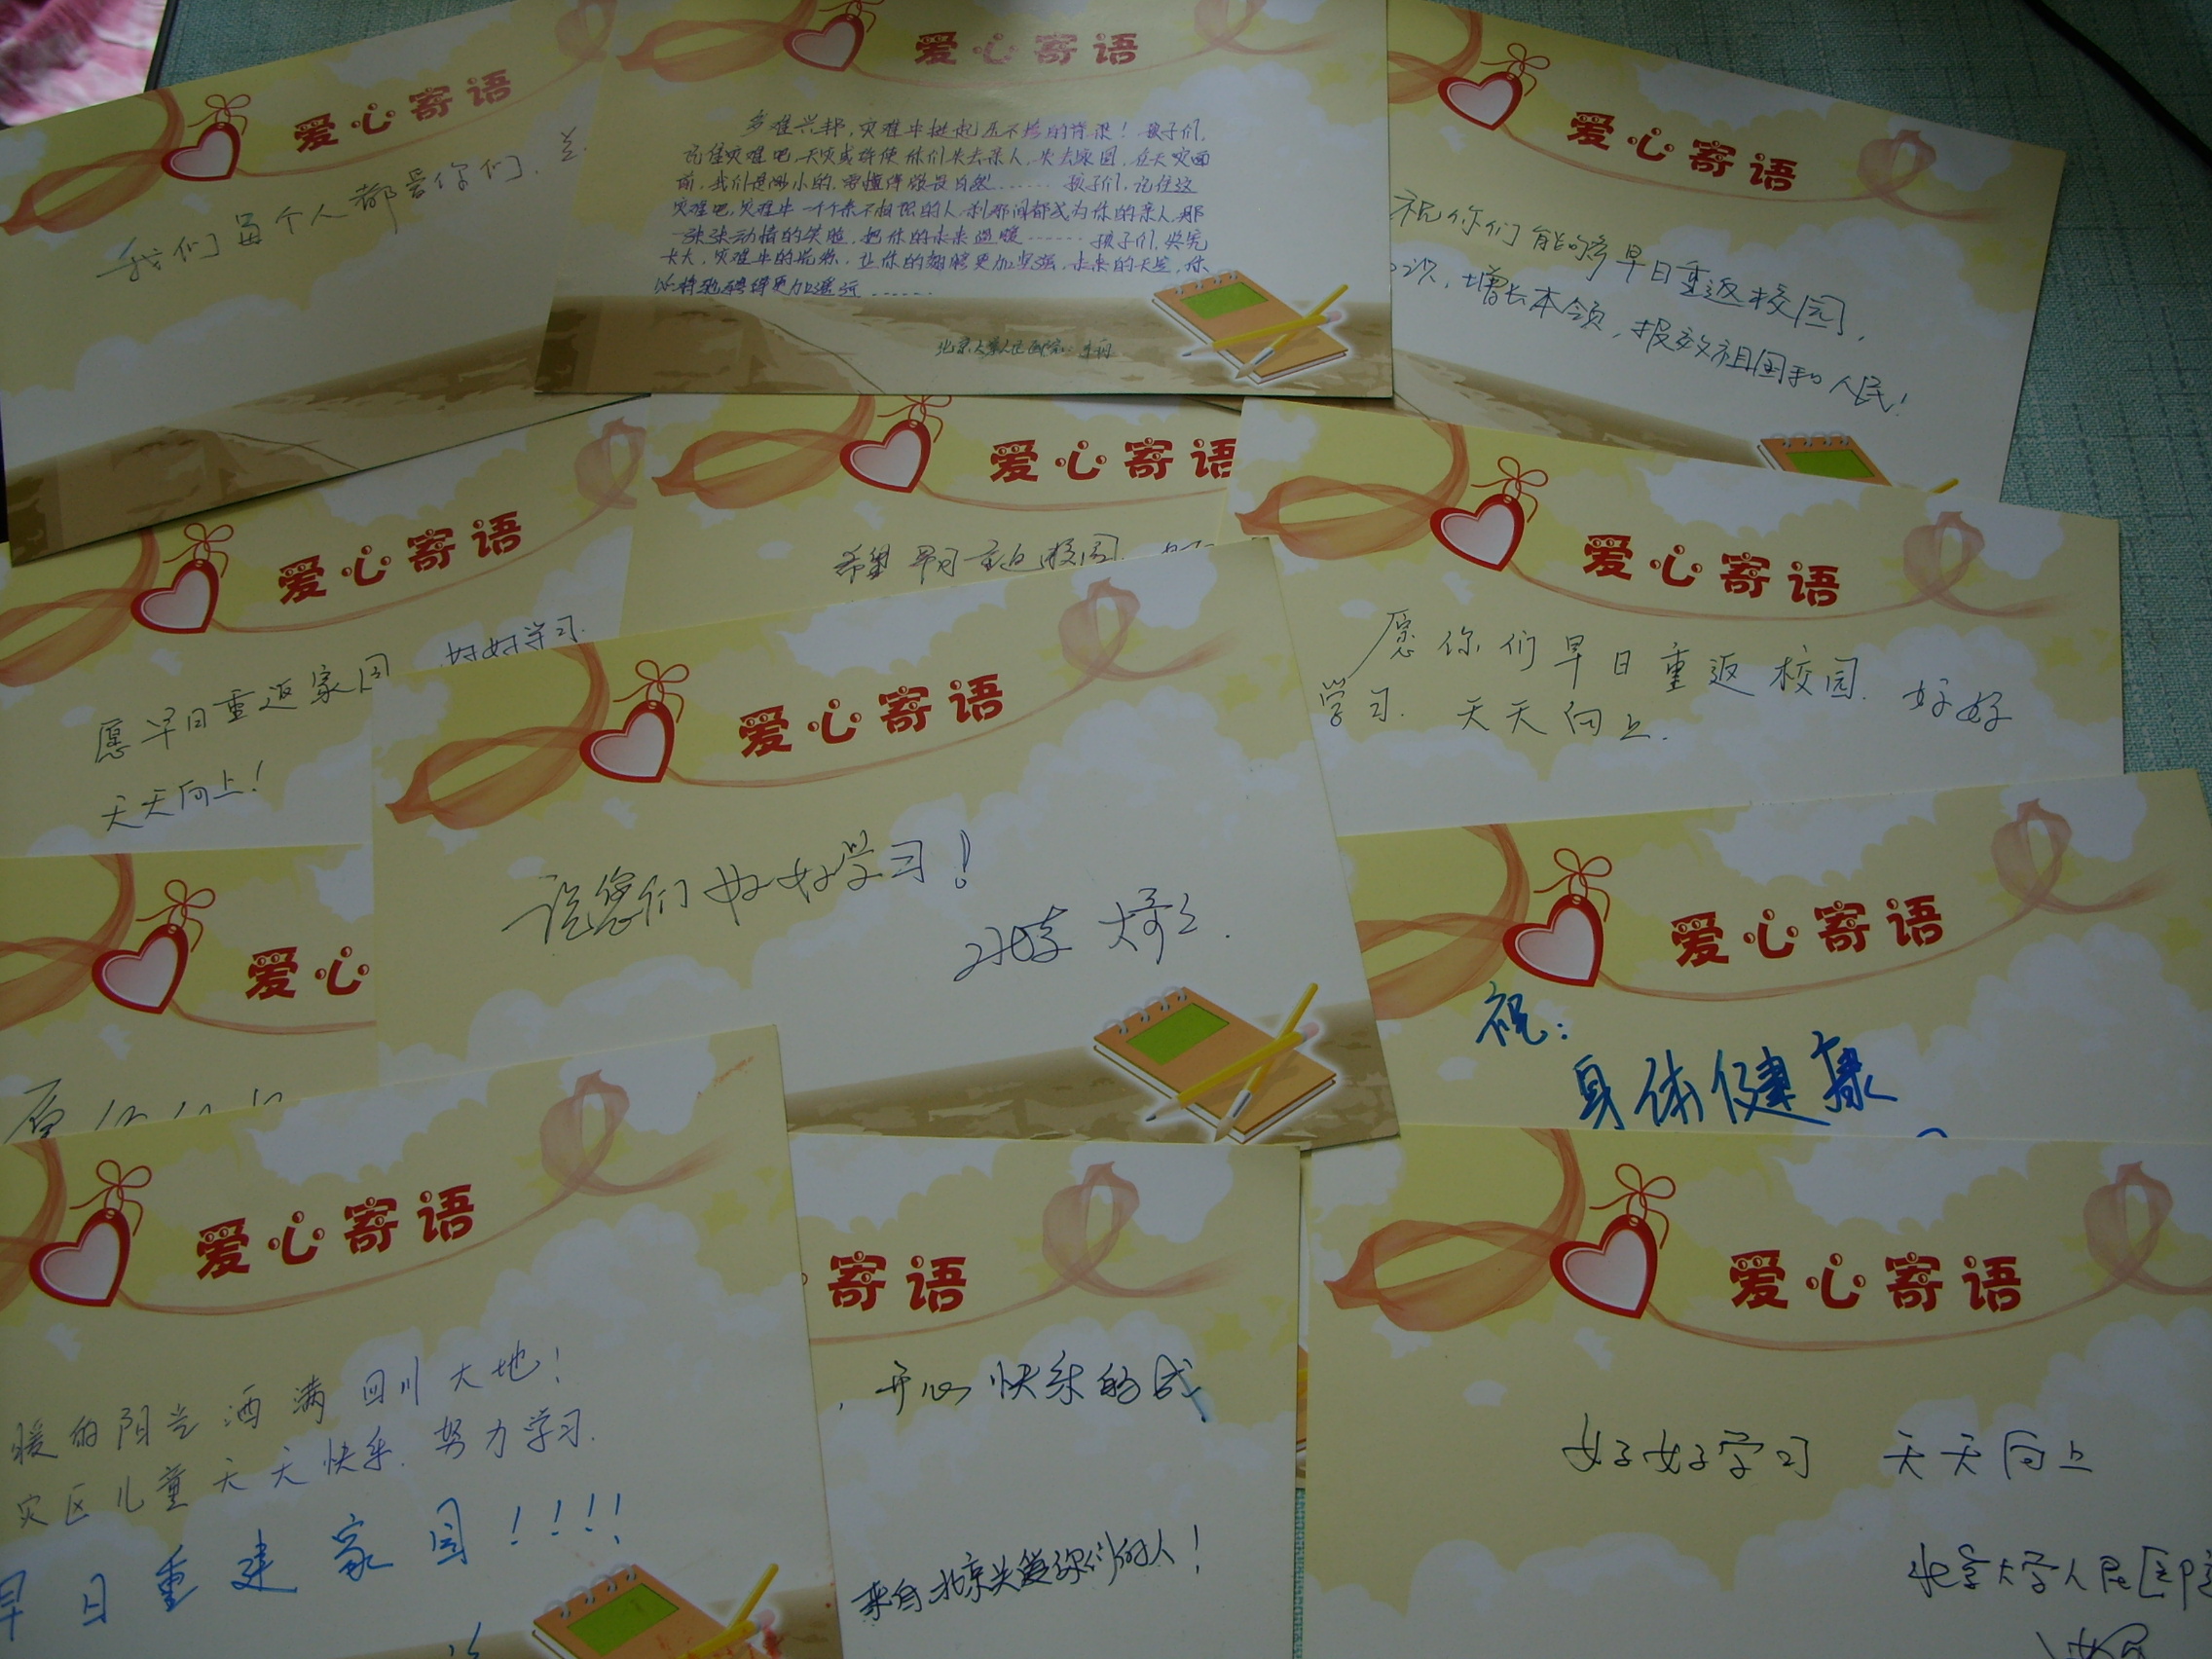 爱心寄语
我们每个人都爱你们.
爱心寄语
多难兴邦,灾难中挺起压不垮的脊梁!孩子们,
记住灾难吧,天灾或许使你们失去亲人,失去家园,在天灾面
前,我们是渺小的,要懂得敬畏自然…… 孩子们,记住这
灾难吧,灾难中一个个素不相识的人,刹那间都成为你的亲人,那
一张张动情的笑脸,把你的未来温暖…… 孩子们,快凭
长大,灾难中的洗礼,让你的翅膀更加坚强,未来的天空,你
必将飞得更加遥远……
北京大学人民医院:
爱心寄语
祝你们能够早日重返校园,
识,增长本领,报效祖国和人民!
爱心寄语
愿早日重返家园 好好学习.
天天向上!
爱心寄语
希望早日重返校园.
爱心寄语
愿你们早日重返校园. 好好
学习. 天天向上.
爱心
愿
爱心寄语
祝您们好好学习!
爱心寄语
祝:
身体健康
爱心寄语
暖的阳光洒满四川大地!
灾区儿童天天快乐.努力学习.
早日重建家园!!!!
寄语
,开心快乐的成
来自北京关爱你们的人!
爱心寄语
好好学习 天天向上
北京大学人民医院